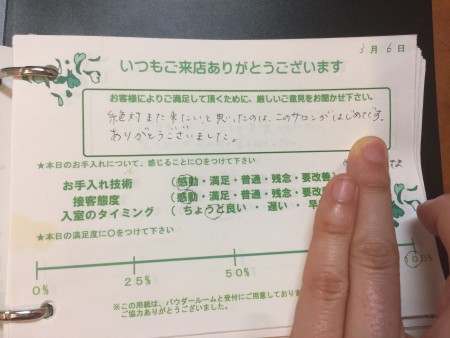 3月6日
いつもご来店ありがとうございます
お客様によりご満足して頂くために、厳しいご意見をお聞かせ下さい。
絶対また来たいと思ったのは、このサロンがはじめてです。
ありがとうございました。
★本日のお手入れについて、感じることに〇をつけて下さい
お手入れ技術 (感動・満足・普通・残念・要改善)
接客態度 (感動・満足・普通・残念・要改善)
入室のタイミング (ちょうど良い ・ 遅い ・ 早
★本日の満足度に〇をつけて下さい
0% 25% 50% 100%
※この用紙は、パウダールームと受付にご用意しておりま
ご協力ありがとうございました。